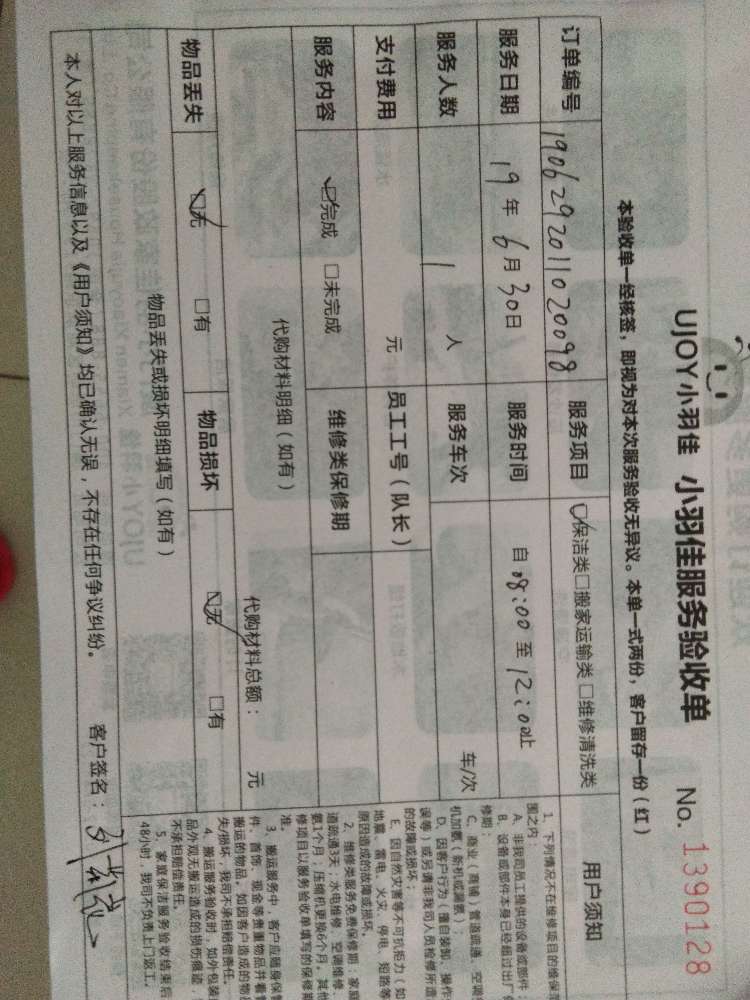 UJOY小羽佳 小羽佳服务验收单 No. 1390128
本验收单一经核签，即视为对本次服务验收无异议。本单一式两份，客户留存一份（红）
订单编号 1906292011020098 服务项目 ☑保洁类□搬家运输类□维修清洗类
服务日期 19年6月30日 服务时间 自08:00至12:00止
服务人数 1 人 服务车次 车/次
支付费用 元 员工工号（队长）
服务内容 ☑完成 □未完成 维修类保修期
代购材料明细（如有）
代购材料总额： 元
物品丢失 ☑无 □有 物品损坏 ☑无 □有
物品丢失或损坏明细填写（如有）
本人对以上服务信息以及《用户须知》均已确认无误，不存在任何争议纠纷。 客户签名：
用户须知
1、下列情况不在维修项目的维保范
围之内：
A、非我司员工提供的设备或部件
B、设备或部件本身已经超过出厂
修期；
C、商业（商铺）管道疏通、空调
机加氨（新机或漏氨）；
D、因客户行为（擅自装卸、操作
误等）或另请非我司人员检修所造
的故障或损坏；
E、因自然灾害等不可抗拒力（如
地震、雷电、火灾、停电、短路等
原因造成的故障或损坏。
2、维修类服务免费保修期：家庭
道疏通3天；水电维修、空调维修
氨1个月；压缩机更换6个月。其他
修项目以服务验收单填写的保修期
准。
3、搬运服务中，客户应随身保管
件、首饰、现金等贵重物品并看管
搬运的物品。如因客户造成的物品
失/损坏，我司不承担赔偿责任。
4、搬运服务验收时，如外包装
品外观无搬运造成的损伤痕迹，
不承担赔偿责任。
5、家庭保洁服务验收结束后
48小时，我司不负责上门返工。